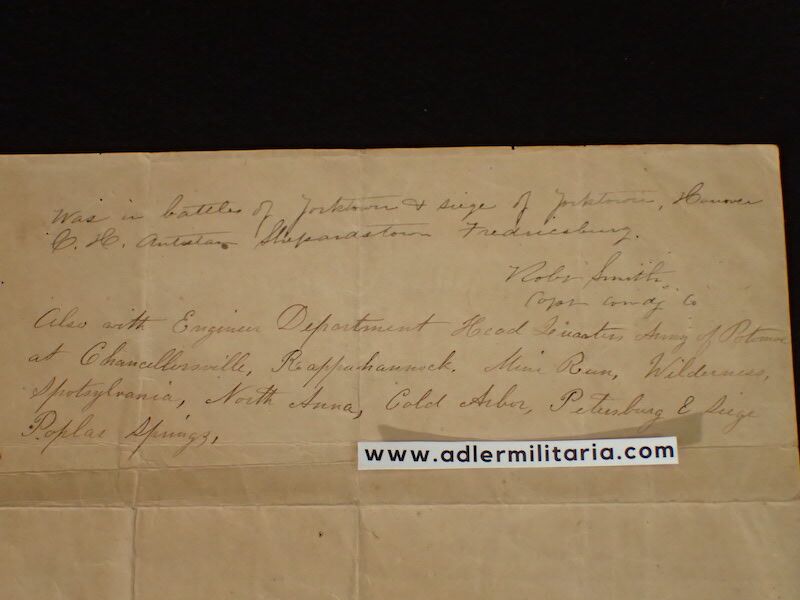 Was in battles of Yorktown & siege of Yorktown, Hanover
C. H. Antetam Shepardstown Fredricsburg.
Robt Smith
Capt comdg Co
Also with Engineer Department Head Quarters Army of Potomac
at Chancellersville, Rappahannock. Mine Run, Wilderness,
Spotsylvania, North Anna, Cold Arbor, Petersburg & Siege
Poplar Springs,
www.adlermilitaria.com